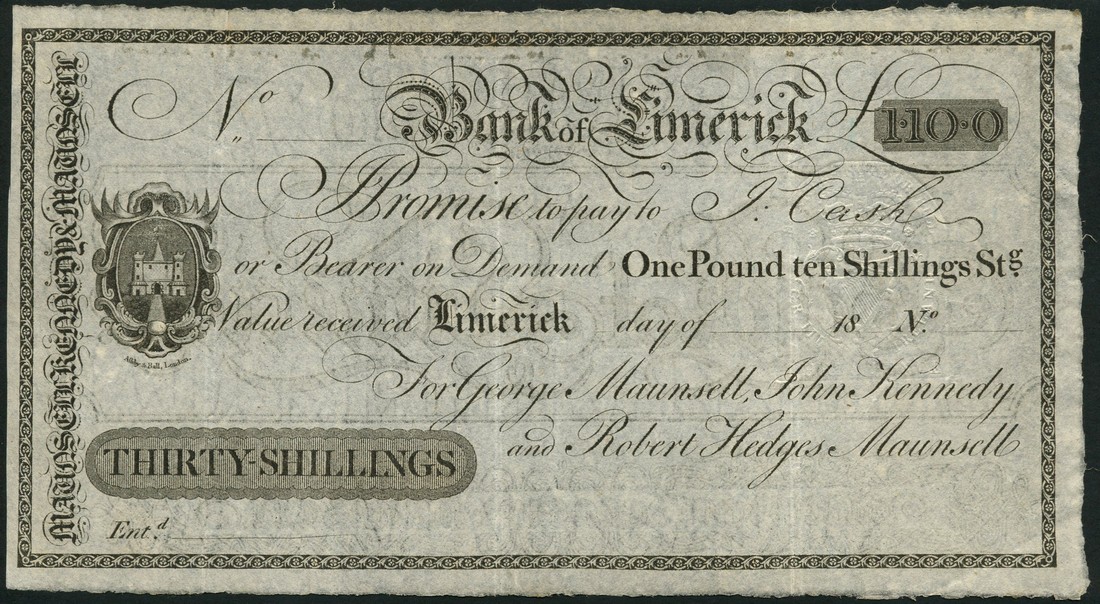 No
Bank of Limerick
£1·10·0
I Promise to pay to J. Cash
or Bearer on Demand One Pound ten Shillings Stg.
Value received Limerick day of 18 No.
For George Maunsell, John Kennedy
and Robert Hedges Maunsell
THIRTY-SHILLINGS
Entd.
MAUNSELL KENNEDY & MAUNSELL
Ashby & Ball, London.